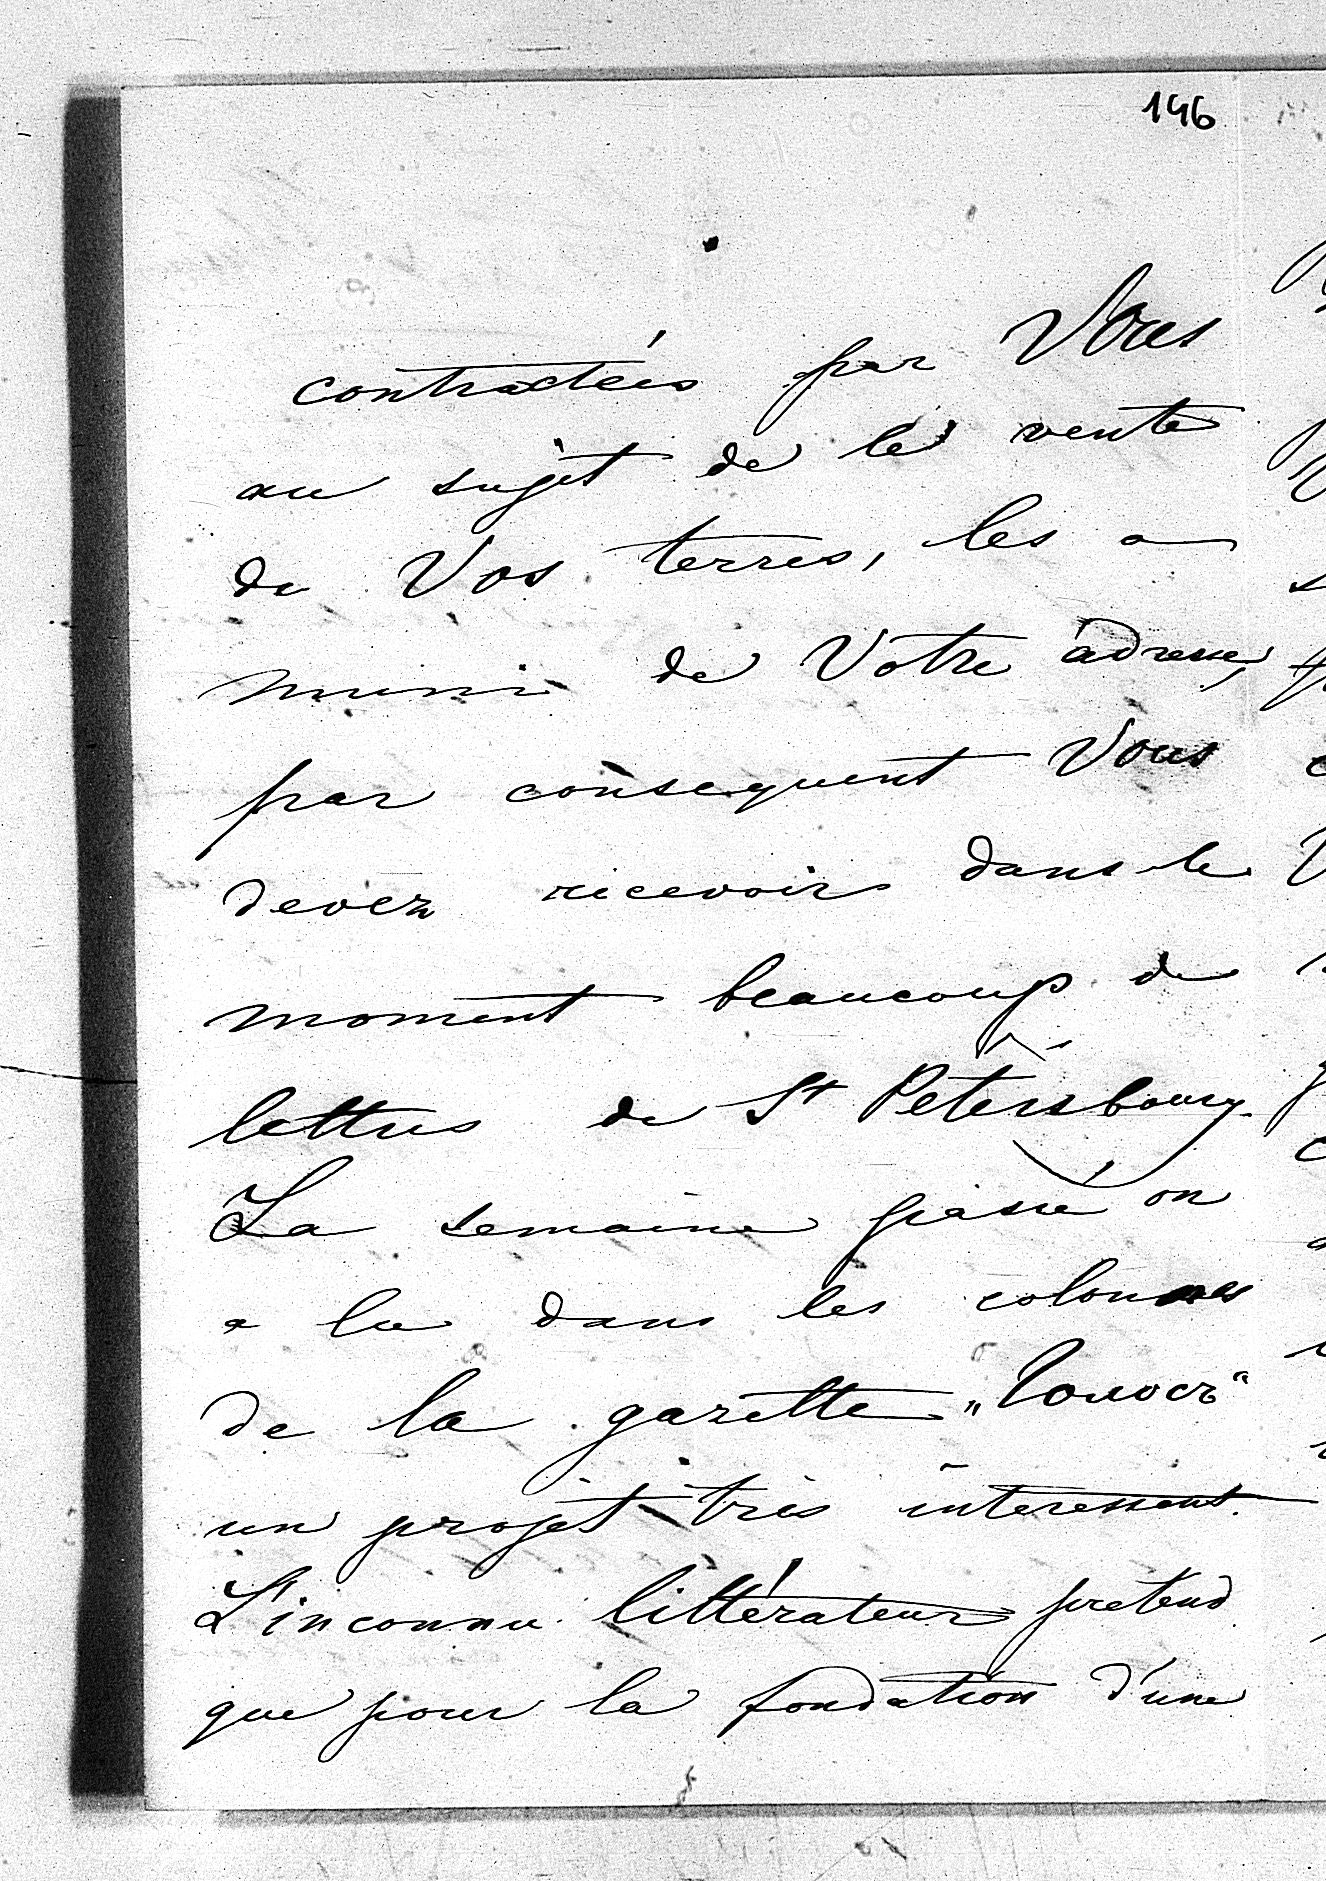 146
contractées par Vous
au sujet de la vente
de Vos terres, les a
muni de Votre adresse,
par consequent Vous
devez recevoir dans le
moment beaucoup de
lettres de St Petersbourg.
La semaine passé on
a lu dans les colonnes
de la gazette „Голосъ“
un projet très interessant.
L'inconnu littérateur pretend
que pour la fondation d'une